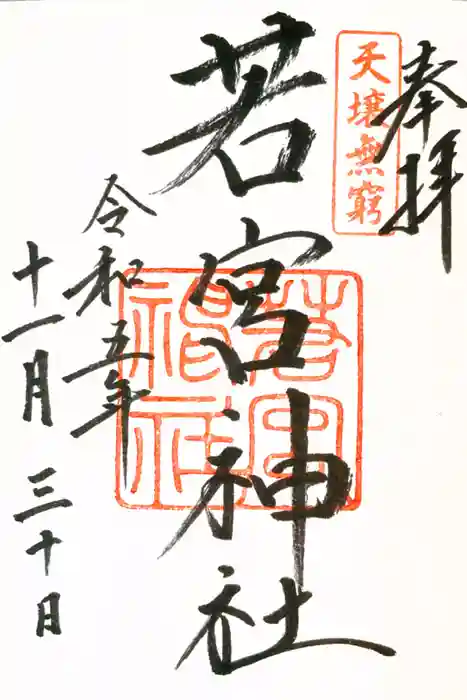 奉拝
天壌無窮
若宮神社
若宮神社
令和五年
十一月三十日